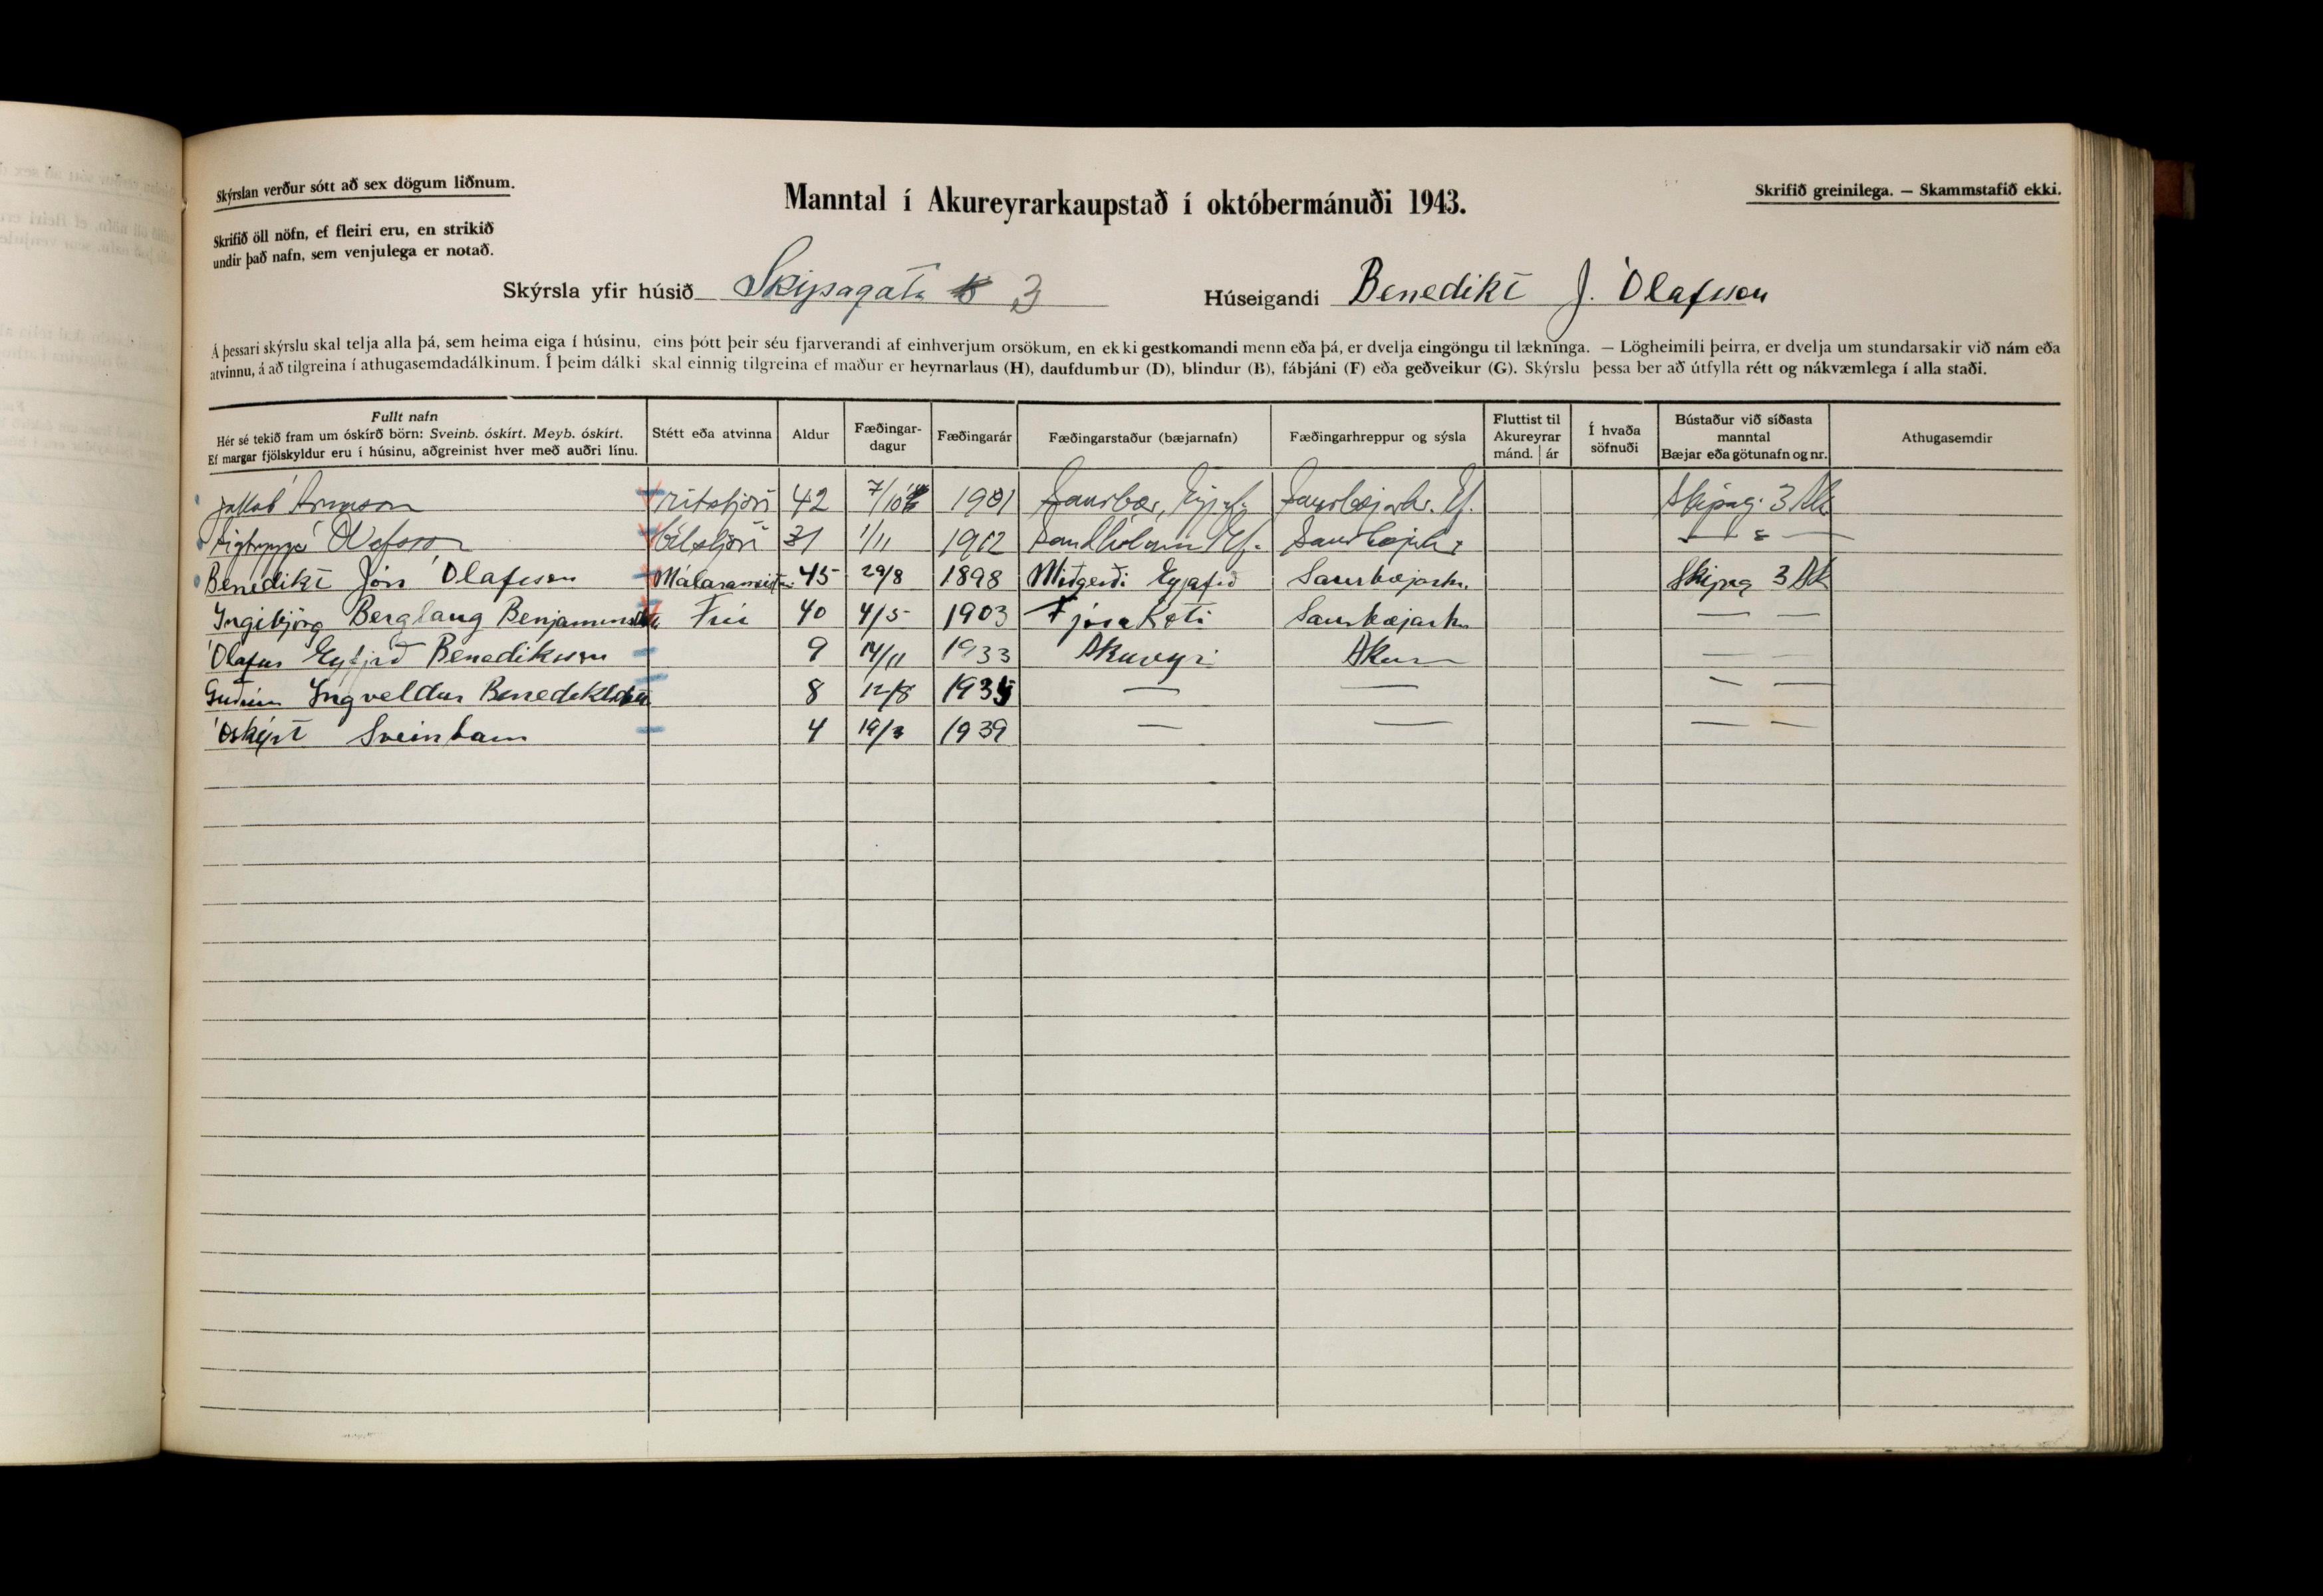 Skýrslan verður sótt að sex dögum liðnum.
Manntal í Akureyrarkaupstað í októbermánuði 1943.
Skrifið greinilega. — Skammstafið ekki.
Skrifið öll nöfn, ef fleiri eru, en strikið
undir það nafn, sem venjulega er notað.
Skýrsla yfir húsið Skipagata 3 Húseigandi Benedikt J. Ólafsson
Á þessari skýrslu skal telja alla þá, sem heima eiga í húsinu, eins þótt þeir séu fjarverandi af einhverjum orsökum, en ekki gestkomandi menn eða þá, er dvelja eingöngu til lækninga. — Lögheimili þeirra, er dvelja um stundarsakir við nám eða
atvinnu, á að tilgreina í athugasemdadálkinum. Í þeim dálki skal einnig tilgreina ef maður er heyrnarlaus (H), daufdumbur (D), blindur (B), fábjáni (F) eða geðveikur (G). Skýrslu þessa ber að útfylla rétt og nákvæmlega í alla staði.
Fullt nafn
Hér sé tekið fram um óskírð börn: Sveinb. óskírt. Meyb. óskírt.
Ef margar fjölskyldur eru í húsinu, aðgreinist hver með auðri línu.
Stétt eða atvinna
Aldur
Fæðingar-
dagur
Fæðingarár
Fæðingarstaður (bæjarnafn)
Fæðingarhreppur og sýsla
Fluttist til
Akureyrar
mánd. ár
Í hvaða
söfnuði
Bústaður við síðasta
manntal
Bæjar eða götunafn og nr.
Athugasemdir
Jakob Árnason ritstjóri 42 7/10 1901 Saurbæ, Eyjaf. Saurbæjarhr. Ef. Skipag. 3 Ak
Sigtryggr Ólafsson bílstjóri 31 1/11 1912 Sandhólum Ef. Saurbæjarh
Benedikt Jón Ólafsson Málarameist. 45 29/8 1898 Miðgerði Eyjafið Saurbæjarh. Skipag 3 Ak
Ingibjörg Berglaug Benjaminsd Frú 40 4/5 1903 Fjósakoti Saurbæjarh. — —
Ólafur Eyfjrð Benediksson 9 14/11 1933 Akureyri Akur — —
Guðrún Ingveldur Benediktsd 8 12/8 1935 — — — —
Óskýrt Sveinbarn 4 19/3 1939 — — — —